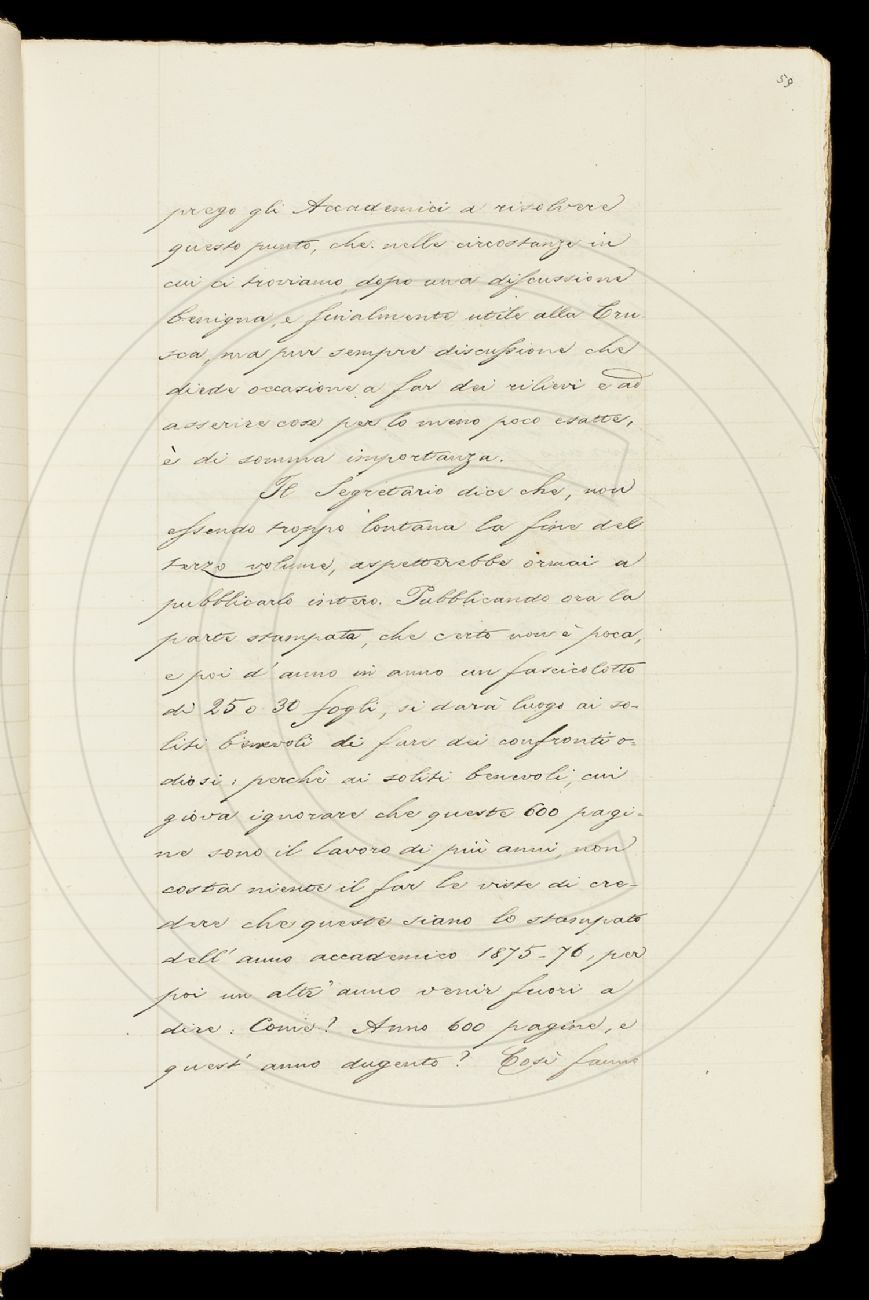 59
prego gli Accademici a risolvere
questo punto, che nelle circostanze in
cui ci troviamo, dopo una discussione
benigna, e finalmente utile alla Cru-
sca, ma pur sempre discussione che
diede occasione a far dei rilievi e ad
asserire cose per lo meno poco esatte,
è di somma importanza.
Il Segretario dice che, non
essendo troppo lontana la fine del
terzo volume, aspetterebbe ormai a
pubblicarlo intero. Pubblicando ora la
parte stampata, che certo non è poca,
e poi d'anno in anno un fascicolotto
di 25 o 30 fogli, si darà luogo ai so-
liti benevoli di fare dei confronti o-
diosi: perchè ai soliti benevoli, cui
giova ignorare che queste 600 pagi-
ne sono il lavoro di più anni, non
costa niente il far le viste di cre-
dere che queste siano lo stampato
dell'anno accademico 1875-76, per
poi un altr'anno venir fuori a
dire: Come? Anno 600 pagine, e
quest'anno dugento? Così fanno